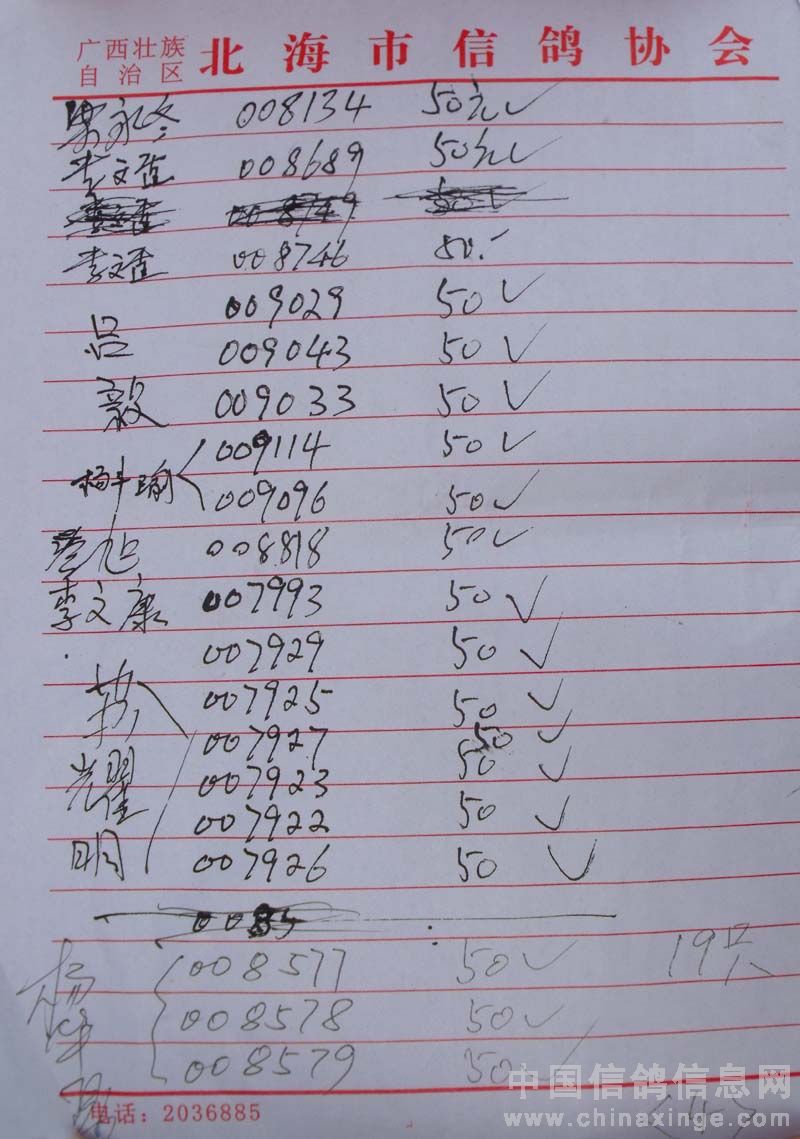 广西壮族自治区 北海市信鸽协会
008134 50元✓
李文 008689 50元✓
李文 008746 50.-
009029 50 ✓
吕 009043 50 ✓
毅 009033 50 ✓
009114 50 ✓
杨 009096 50 ✓
旭 008818 50 ✓
李文康 007993 50 ✓
007929 50 ✓
007925 50 ✓
007927 50 ✓
光耀 007923 50 ✓
007922 50 ✓
明 007926 50 ✓
0085
杨 008577 50 ✓ 19只
008578 50 ✓
008579 50 ✓
电话：2036885
中国信鸽信息网
www.chinaxinge.com